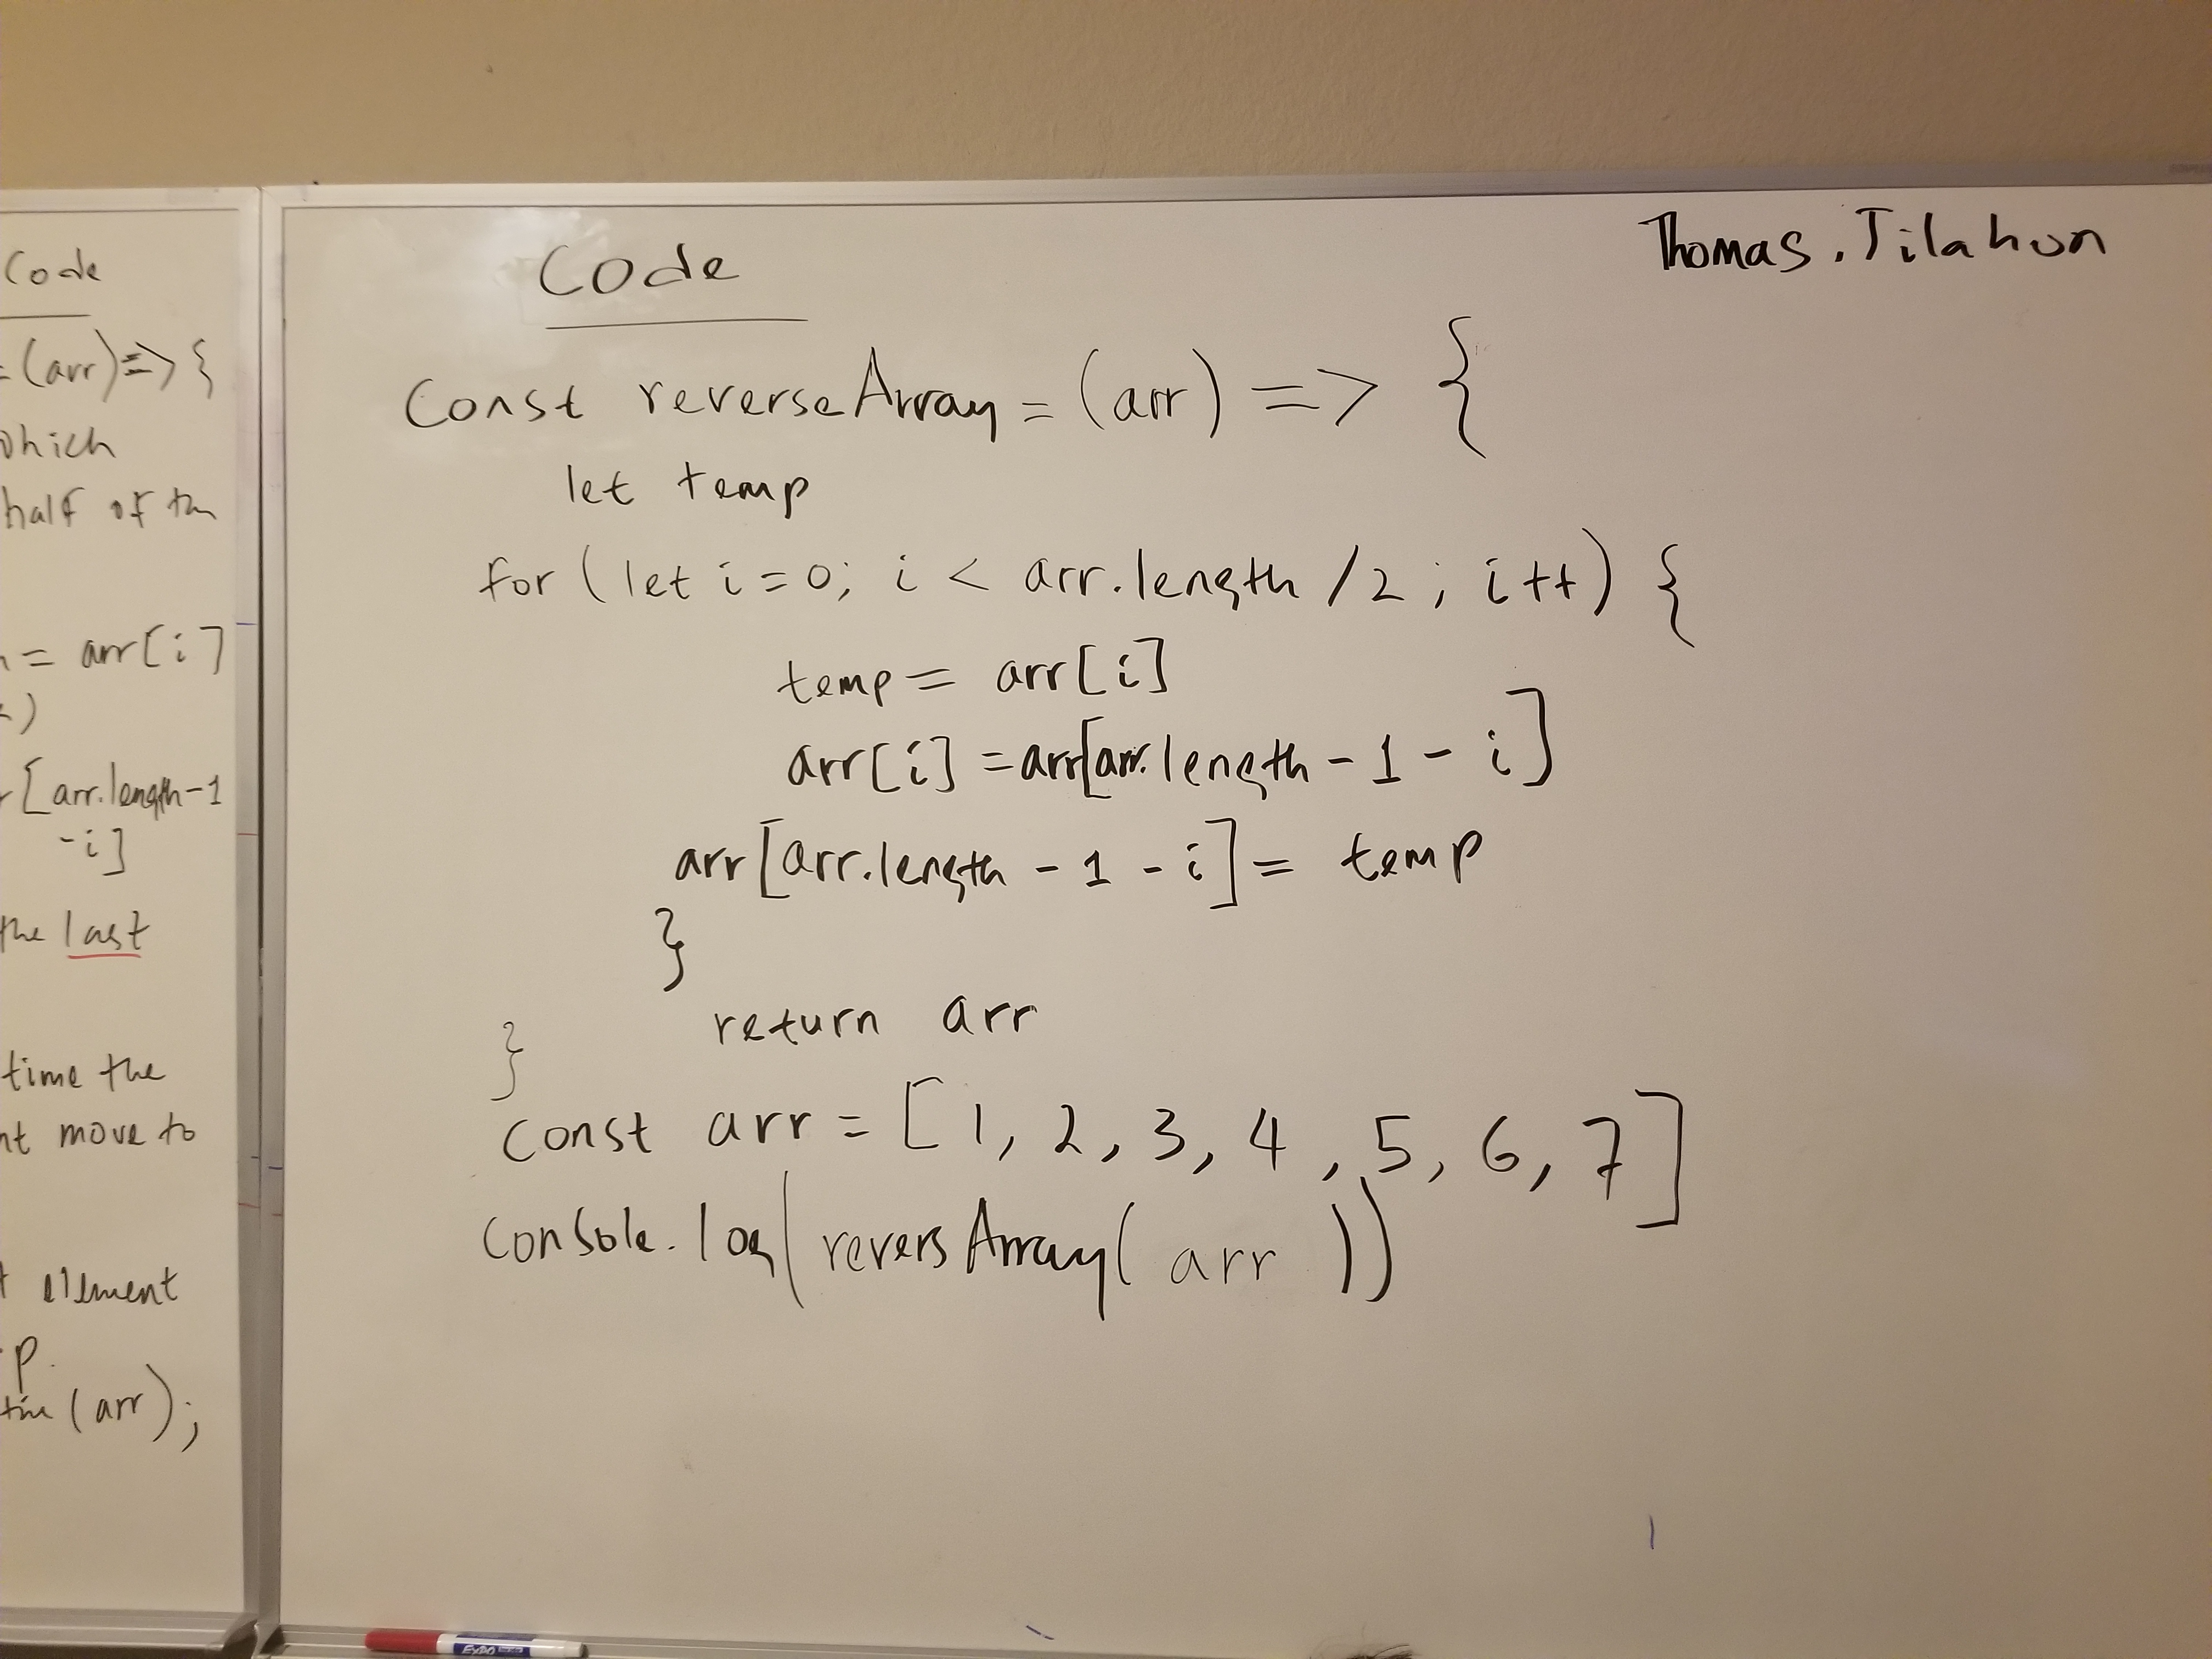 Code
= (arr) => {
which
half of th
= arr[i]
r[arr.length-1
-i]
the last
time the
nt move to
element
p.
(arr);
Code
Thomas. Tilahun
Const reverseArray = (arr) => {
let temp
for (let i = 0; i < arr.length / 2 ; i++) {
temp = arr[i]
arr[i] = arr[arr.length - 1 - i]
arr[arr.length - 1 - i] = temp
}
return arr
}
Const arr = [1, 2, 3, 4, 5, 6, 7]
Console.log(reversArray( arr ))
EXPO